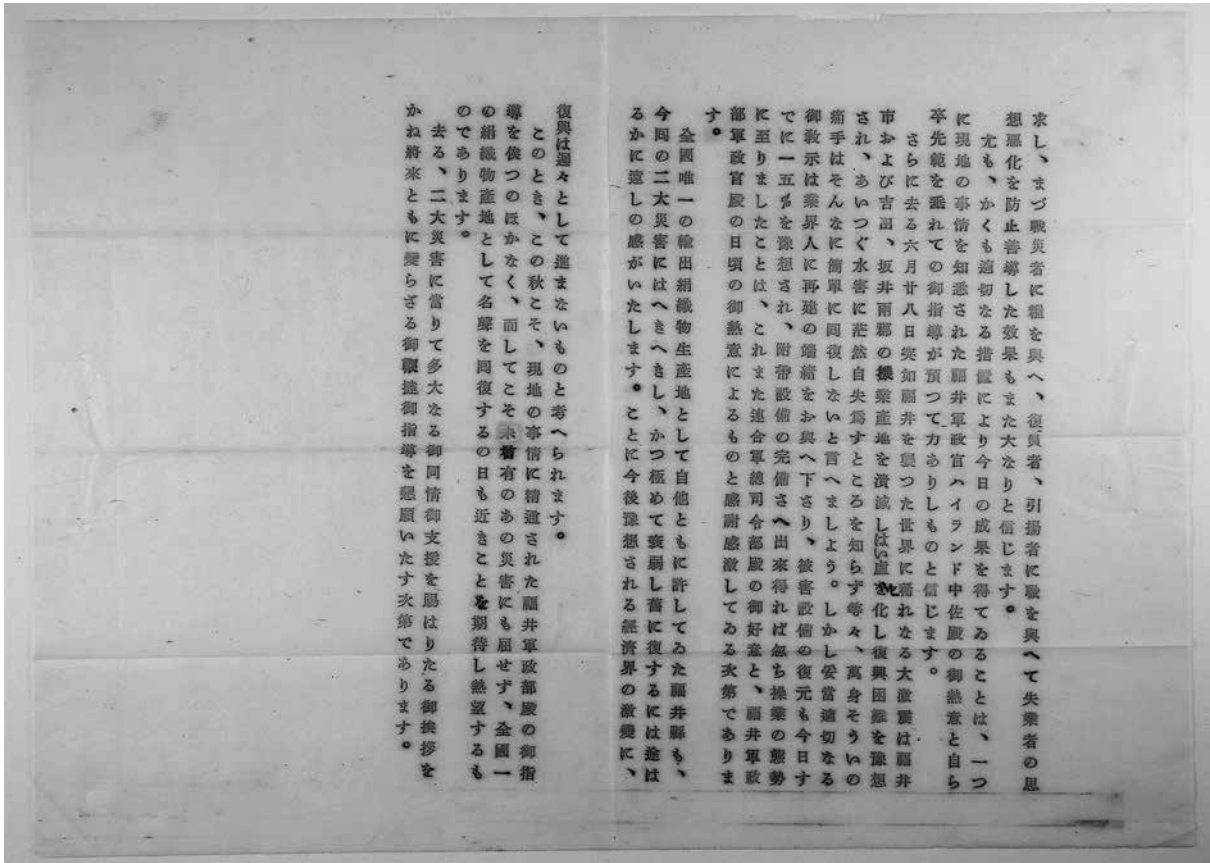 求し、まづ戰災者に糧を與へ、復員者、引揚者に職を與へて失業者の思
想惡化を防止善導した效果もまた大なりと信じます。
尤も、かくも適切なる措置により今日の成果を得てゐることは、一つ
に現地の事情を知悉された福井軍政官ハイランド中佐殿の御熱意と自ら
卒先範を垂れての御指導が預つて力ありしものと信じます。
さらに去る六月廿八日突如福井を襲つた世界に稀れなる大激震は福井
市および吉田、坂井兩郡の機業産地を潰滅しはい虚と化し復興困難を豫想
され、あいつぐ水害に茫然自失爲すところを知らず等々、萬身そういの
痛手はそんなに簡單に囘復しないと言へましよう。しかし妥當適切なる
御敎示は業界人に再建の端緒をお與へ下さり、被害設備の復元も今日す
でに一五%を豫想され、附帶設備の完備さへ出來得れば忽ち操業の態勢
に至りましたことは、これまた連合軍總司令部殿の御好意と、福井軍政
部軍政官殿の日頃の御熱意によるものと感謝感激してゐる次第でありま
す。
全國唯一の輸出絹織物生産地として自他ともに許してゐた福井縣も、
今囘の二大災害にはへきへきし、かつ極めて衰弱し舊に復するには途は
るかに遠しの感がいたします。ことに今後豫想される經濟界の激變に、
復興は遲々として進まないものと考へられます。
このとき、この秋こそ、現地の事情に精通された福井軍政部殿の御指
導を俟つのほかなく、而してこそ未曾有のあの災害にも屈せず、全國一
の絹織物産地として名聲を囘復するの日も近きことを期待し熱望するも
のであります。
去る、二大災害に當りて多大なる御同情御支援を賜はりたる御挨拶を
かね將來ともに變らざる御鞭撻御指導を懇願いたす次第であります。